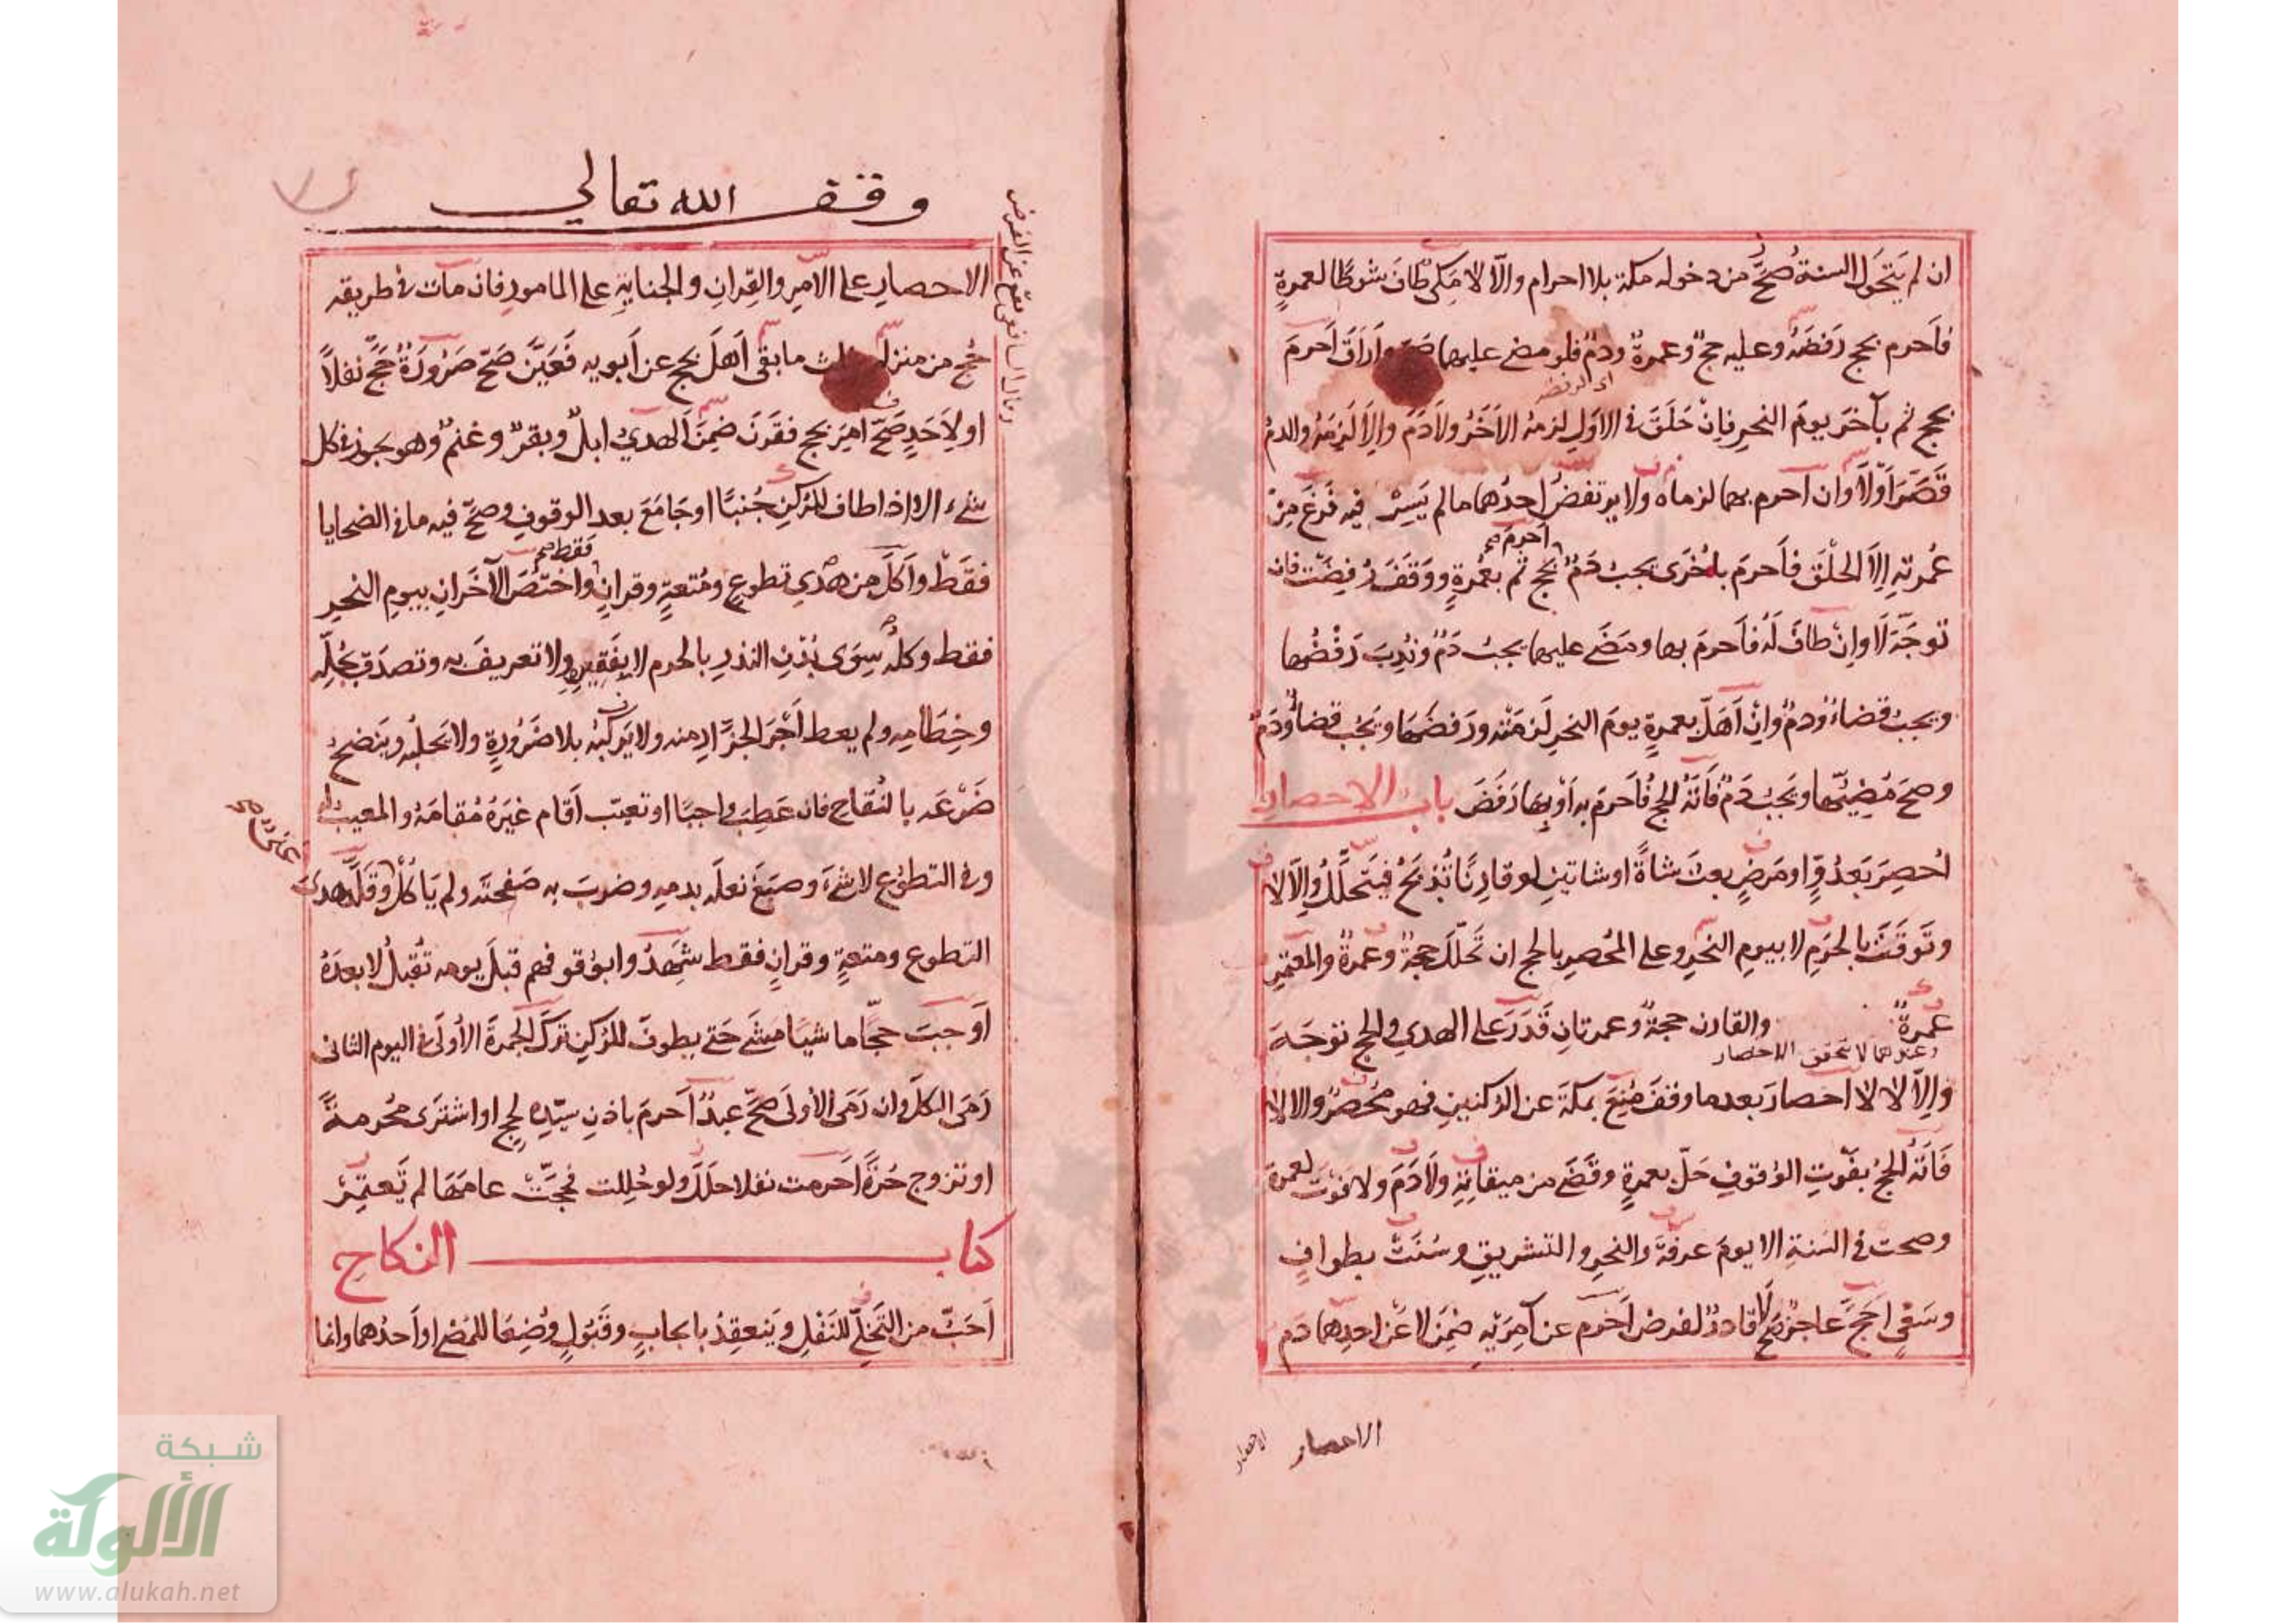 ان لم يَتَحَوَّل السنةُ صَحَّ من دخوله مكة بلا احرام والّا لا مَكي طافَ شوطًا لعمرةٍ
فاَحرم بحج رَفَضَهُ وعليه حجٌ وعمرةٌ ودمٌ فلو مضى عليهما صَحَّ وَاَرَاقَ اَحرمَ
اى الرفض
بحج ثم بآخَرَ يومَ النحرِ فاِنْ حَلَقَ في الاوّلِ لزمهُ الآخَرُ ولا دَمَ واِلاَّ لَزِمَهُ والدمُ
قَصَّرَ اَوْلاَ وان اَحرم بهما لزماه ولا يرتفضُ احدُهما ما لم يَسِرْ فيه فَرَغَ مِنْ
عُمرتهِ اِلاَّ الحلْقَ فاَحرمَ بِاُخْرَى يجبُ دَمٌ بحج ثم بعُمرةٍ ووَقَفَ رُفِضَت فان
اَحرمَ صح
توجّهَ لَا واِنْ طافَ لَهُ فاَحرمَ بها ومَضَى عليهما يجبُ دَمٌ ونُدِبَ رَفْضُها
ويجبُ قضاءٌ ودمٌ واِنْ اَهَلَّ بعمرةٍ يومَ النحرِ لَزِمَتْه ورَفَضَها ويَجبُ قضاءٌ ودَمٌ
وصح مُضِيُّها ويَجبُ دَمٌ فَاتَهُ الحج فاَحرمَ به اَوْ بِها رَفَضَ باب الاحصار
اُحصِرَ بَعدُوٍّ او مَرَضٍ بعث شاةً او شاتينِ لو قارِنًا تُذبَحُ فيَتَحلَّلُ واِلاّ لا
وتَوَقَّتَ بالحَرَمِ لا بيومِ النحرِ وعلى المُحصرِ بالحج ان تَحَلّلَ حجةٌ وعمرةٌ والمعتمِرِ
عمرةٌ والقارن حجةٌ وعمرتانِ قَدَرَ على الهديِ والحج توجَّهَ
وعندهما لا يتحقق الاحصار
واِلاّ لا لا احصارَ بعد ما وقفَ مُنِعَ بمكةَ عن الركنينِ فهو مُحْصَرٌ والا لا
فَاتَهُ الحجُ بفَوتِ الوقوفِ حَلّ بعمرةٍ وقَضَى من ميقاتِهِ ولاَ دَمَ ولا فوتَ لعمرة
وصحت في السَنةِ الا يومَ عرفةَ والنحرِ والتشريقِ وسُنَتْ بطوافٍ
وسَعْيٍ اَحَجَّ عاجزٌ صَحَّ لا قادرٌ لفرضٍ اَحرم عن آمِرَيْهِ ضَمِنَ لا عَن احدِهما دَم
الاحصار
الاحصار
وقف الله تعالى
الاحصارِ على الآمِرِ والقِرانِ والجنايةِ على المامورِ فان مَات في طريقه
حُج من منزله بثلث ما بقىَ اَهَلَّ بحج عن اَبويه فَعَيَّنَ صَحّ صَرُورَةٌ حَجَّ نفلاً
او لِاَحَدٍ صَحَّ اُمِرَ بحج فقَرَنَ ضَمِنَ الهديُ ابلٌ وبقرٌ وغنمٌ وهو يجوز في كل
شىءٍ الا اذا طاف للركنِ جُنبًا او جَامَعَ بعد الوقوفِ وصحَّ فيه ما في الضحايا
فقَطْ واَكَلَ من هَدْيِ تطوعٍ ومُتعةٍ وقرانٍ واختصّ الآخَرانِ بيومِ النحر
فقط صح
فقط وكلُّه سِوَى بُدْنِ النذرِ بالحرمِ لا بفَقِيرِهِ ولا تعريفَ به وتصدَق بجُلِّه
وخِطَامِه ولم يعط اَجْرَ الجزَّارِ منه ولا يَركَبُه بلا ضَرُورةٍ ولا يَحلبُه ويَنضحُ
ضَرْعَه بالنُقاخِ فان عَطِبَ واجبًا او تعيّب اَقام غيرَهُ مُقامَهُ والمعيبُ له
وفي التطوّع لا شىءَ وصبَغَ نعلَه بدمهِ وضربَ به صَفحتَه ولم يَأكُلْ وقَلّدَ هدىَ
غنىّ صح
التطوع ومتعةٍ وقرانٍ فقط شَهِدُوا بوُقوفهم قبلَ يومه تُقبلُ لا بعدَهُ
اَوجبَ حجًّا ماشيًا مَشَى حَتى يطوفَ للرُكنِ تَركَ الجمرةَ الأولَى في اليوم الثاني
رَمَى الكلَّ وان رَمَى الأولَى صَحَّ عبدٌ اَحرمَ باذنِ سيّدِه لحجٍ او اشترَى مُحرمةً
او تزوج حُرّةً اَحرمت نفلا حلّلَ ولو حُلِلت فحجّتْ عامَها لم تَعتمِرْ
كتاب النكاح
اَحَبُّ من التَخَلّي للنَفْلِ ويَنعقِدُ بايجابٍ وقَبُولٍ وُضِعَا للمُضي او اَحدُهما وانما